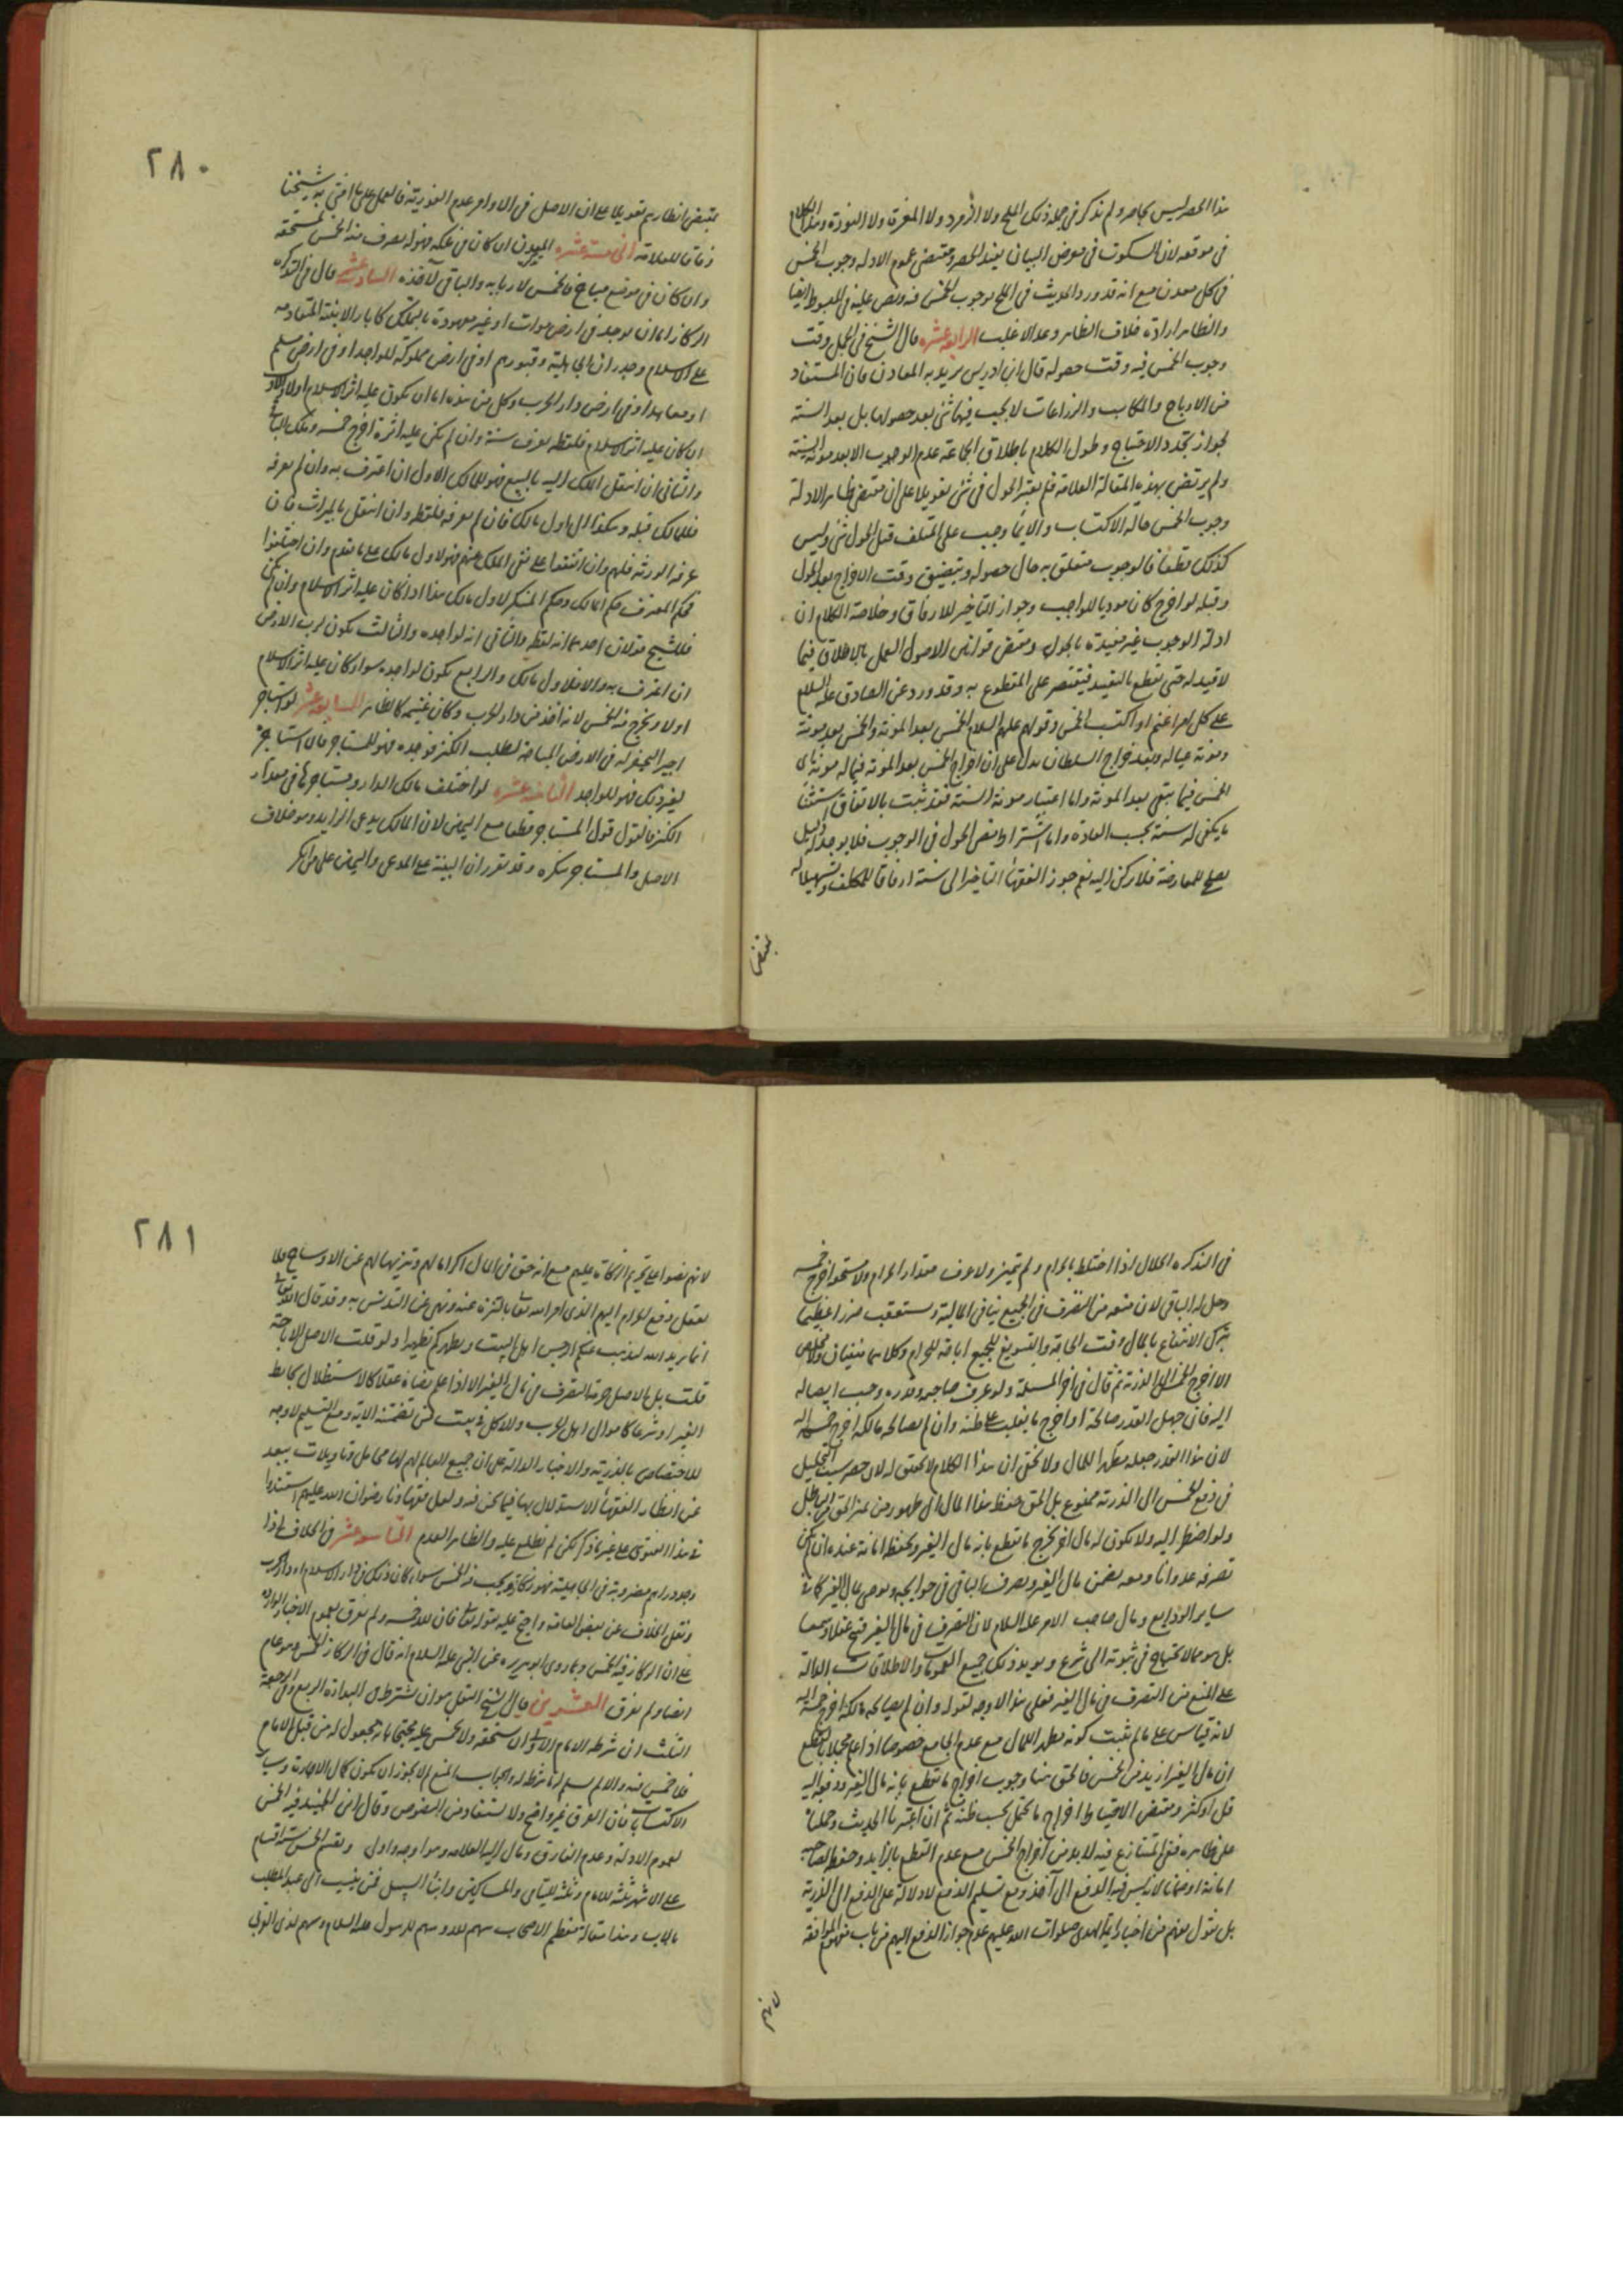 هذا الحصر ليس بحاصر ولم نذكر في جملة ذلك الملح ولا الزمرد ولا المغرة ولا النورة وهذا الكلام
في موقعه لان السكوت في معرض البيان يفيد الحصر ومقتضى عموم الادله وجوب الخمس
في كل معدن مع انه قد ورد الحديث في الملح بوجوب الخمس فيه ونص عليه في المبسوط ايضا
والظاهر ارادة خلاف الظاهر وعد الاغلب الرابعه عشره قال الشيخ في الجمل وقت
وجوب الخمس فيه وقت حصوله قال ابن ادريس يريد به المعادن فان المستفاد
من الارباح والمكاسب والزراعات لا يجب فيها شئ بعد حصولها بل بعد السنة
لجواز تجدد الاحتياج وطول الكلام باطلاق الجماعة عدم الوجوب الا بعد مونة السنة
ولم يرتض بهذه المقالة العلامة فلم يعتبر الحول في شئ تعويلا على ان مقتضى ظاهر الادلة
وجوب الخمس حالة الاكتساب والا لما وجب على المتلف قبل الحول شئ وليس
كذلك قطعا فالوجوب متعلق به حال حصوله ويتضيق وقت الاخراج بعد الحول
وقبله لو اخرج كان موديا للواجب وجواز التاخير للارفاق وخلاصة الكلام ان
ادلة الوجوب غير مقيدة بالحول ومقتضى قوانين الاصول العمل بالاطلاق فيما
لا قيد له حتى نقطع بالتقييد فيقتصر على المقطوع به وقد ورد عن الصادق عليه السلام
على كل امرا غنم او اكتسب الخمس وقولهم عليهم السلام الخمس بعد المونة والخمس بعد مونة
ومونة عياله وبعد خراج السلطان يدل على ان اخراج الخمس بعد المونة فيما له مونة ان
الخمس فيما تبقى بعد المونة واما اعتبار مونة السنة فقد ثبت بالاتفاق استثنا
ما يكفى له سنة بحسب العادة واما اشتراط مضى الحول في الوجوب فلا يوجد له دليل
يصلح للمعارضة فلا يركن اليه نعم جوز الفقها التاخير الى سنة ارفاقا للمكلف وتسهيلا له
بمقتضى
٢٨٠
بمقتضى انظارهم تعويلا على ان الاصل في الاوامر عدم الفورية فالعمل على ما افتى به شيخنا
وفاقا للعلامة الخامسة عشره المعدن ان كان في ملكه فهو له يصرف منه الخمس لمستحقه
وان كان في موضع مباح فالخمس لاربابه والباقى لآخذه السادسة عشر قال في التذكره
الركاز اما ان يوجد في ارض موات او غير معهودة بالتملك كاثار الابنية المتقادمه
على الاسلام وجدران الجاهلية وقبورهم او في ارض مملوكة للواجد او في ارض مسلم
او معاهد او في ارض دار الحرب وكل من هذه اما ان يكون عليه اثر الاسلام او لا فالاول
ان كان عليه اثر الاسلام فلقطه يعرف سنة وان لم يكن عليه اثره اخرج خمسه وملك الباقى
والثانى ان انتقل الملك اليه بالبيع فهو للمالك الاول ان اعترف به وان لم يعرفه
فللمالك قبله وهكذا الى اول مالك فان لم يعرفه فلقطه وان انتقل بالميراث فان
عرفه الورثة فلهم وان اتفقوا على نفى الملك عنهم فهو لاول مالك على ما تقدم وان اختلفوا
فحكم المعترف حكم المالك وحكم المنكر لاول مالك هذا اذا كان عليه اثر الاسلام وان لم يكن
فللشيخ قولان احدهما انه لقطه والثانى انه لواجده والثالث يكون لرب الارض
ان اعترف به والا فلاول مالك والرابع يكون لواجده سوا كان عليه اثر الاسلام
اولا ويخرج منه الخمس لانه اخذ من دار الحرب وكان غنيمه كالظاهر السابعه عشر لو استاجر
اجيرا ليحفر له في الارض المباحة لطلب الكنز فوجده فهو للمستاجر فان استاجره
لغير ذلك فهو للواجد الثامنه عشره لو اختلف مالك الدار ومستاجرها في مقدار
الكنز فالقول قول المستاجر قطعا مع اليمين لان المالك يدعى الزايد وهو خلاف
الاصل والمستاجر ينكره وقد تقرر ان البينة على المدعى واليمين على من انكر
في التذكره الحلال اذا اختلط بالحرام ولم يتميز ولا عرف مقدار الحرام ولا مستحقه اخرج خمسه
وحل له الباقى لان منعه من التصرف في الجميع ينافى المالية ويستعقب ضررا عظيما
بترك الانتفاع بالمال وقت الحاجة والتسويغ للجميع اباحة للحرام وكلاهما منفيان ولا مخلص
الا اخراج الخمس الى الذرية ثم قال في اخر المسئلة ولو عرف صاحبه وقدره وجب ايصاله
اليه فان جهل القدر صالحه او اخرج ما يغلب على ظنه وان لم يصالحه مالكه اخرج خمسه اليه
لان هذا القدر جعله مطهرا للمال ولا يخفى ان هذا الكلام لا تحقق له لان حصر سبب التحليل
في دفع الخمس الى الذرية ممنوع بل الحق حفظ هذا المال الى ظهور من يميز الحق من الباطل
ولو اضطر اليه ولا يكون له مال اخر يخرج ما نقطع بانه مال الغير ويحفظ امانة عنده ان لم يكن
تصرفه عدوانا ومعه يضمن مال الغير ويصرف الباقى في حوايجه ويوصى بمال الغير كما في
ساير الودايع ومال صاحب الامر عليه السلام لان التصرف في مال الغير قبيح عقلا وسمعا
بل هو مما لا يحتاج في ثبوته الى شرع ويويد ذلك جميع العمومات والاطلاقات الدالة
على المنع من التصرف في مال الغير فعلى هذا لا وجه لقوله وان لم يصالحه مالكه اخرج خمسه اليه
لانه قياس على ما لم يثبت كونه مطهرا للمال مع عدم الجامع خصوصا اذا علم مجملا بالقطع
ان مال الغير ازيد من الخمس فالحق هنا وجوب اخراج ما نقطع بانه مال الغير ودفعه اليه
قل او كثر ومقتضى الاحتياط اخراج ما يحتمل بحسب ظنه ثم ان اعتبرنا الحديث وحملناه
على ظاهره ففى المتنازع فيه لا بد من اخراج الخمس مع عدم القطع بالزايد وحفظه لصاحبه
امانة او ضمانا لانه ليس فيه الدفع الى آخذ ومع تسليم الدفع لا دلالة على الدفع الى الذرية
بل نقول يفهم من اخبار ايمة الهدى صلوات الله عليهم عدم جواز الدفع اليهم من باب مفهوم الموافقه
لانهم
٢٨١
لانهم نصوا على تحريم الزكاة عليهم مع انه حق في المال اكراما لهم وتنزيها لهم عن الاوساخ فلا
يعقل دفع الحرام اليهم الذى امر الله تعالى بالتنزه عنه ونهى عن التدنس به وقد قال الله تعالى
انما يريد الله ليذهب عنكم الرجس اهل البيت ويطهركم تطهيرا ولو قلت الاصل الاباحة
قلت بل الاصل حرمة التصرف في مال الغير الا اذا علم رضاه عقلا كالاستظلال بحايط
الغير او شرعا كاموال اهل الحرب والاكل في بيت من تضمنته الاية ومع التسليم لا وجه
للاختصاص بالذرية والاخبار الدالة على ان جميع العالم لهم لها محامل وتاويلات يبعد
عن انظار الفقها الاستدلال بها فيما نحن فيه ولعل فقهاؤنا رضوان الله عليهم استندوا
في هذا الفتوى على غير ما ذكر لكن لم نطلع عليه والظاهر العدم التاسعه عشر في الخلاف اذا
وجد دراهم مضروبة في الجاهلية فهو ركاز ويجب فيه الخمس سواء كان ذلك في دار الاسلام او دار الحرب
ونقل الخلاف عن بعض العامه واحتج عليه بقوله تعالى فان لله خمسه ولم يفرق بعموم الاخبار الواردة
على ان الركاز فيه الخمس وبما روى ابو هريره عن النبى عليه السلام انه قال في الركاز الخمس وهو عام
ايضا ولم يفرق العشرين قال الشيخ النفل هو ان يشترط في البداءة الربع وفى الرجعة
الثلث ان شرطه الامام الاولى استحقه ولا خمس عليه محتجا بانه مجعول له من قبل الامام
فلا خمس فيه والا لم يسلم له ما شرط له والجواب المنع لم لا يجوز ان يكون كمال الاجارة وساير
الاكتساب فان الفرق غير واضح ولا مستفاد من النصوص وقال ابن الجنيد فيه الخمس
لعموم الادلة وعدم الفارق ومال اليه العلامه وهو اوجه واولى ويقسم الخمس ستة اقسام
على الاشهر ثلثة للامام وثلثة لليتامى والمساكين وابناء السبيل ممن ينتسب الى عبد المطلب
بالاب وهذا مقالة معظم الاصحاب سهم لله وسهم للرسول عليه السلام وسهم لذى القربى